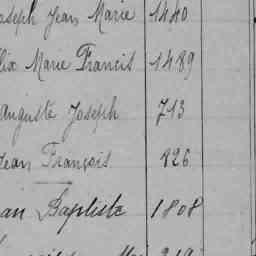 oseph Jean Marie 1440
lix Marie Francis 1489
Auguste Joseph 713
Jean François 826
ean Baptiste 1808